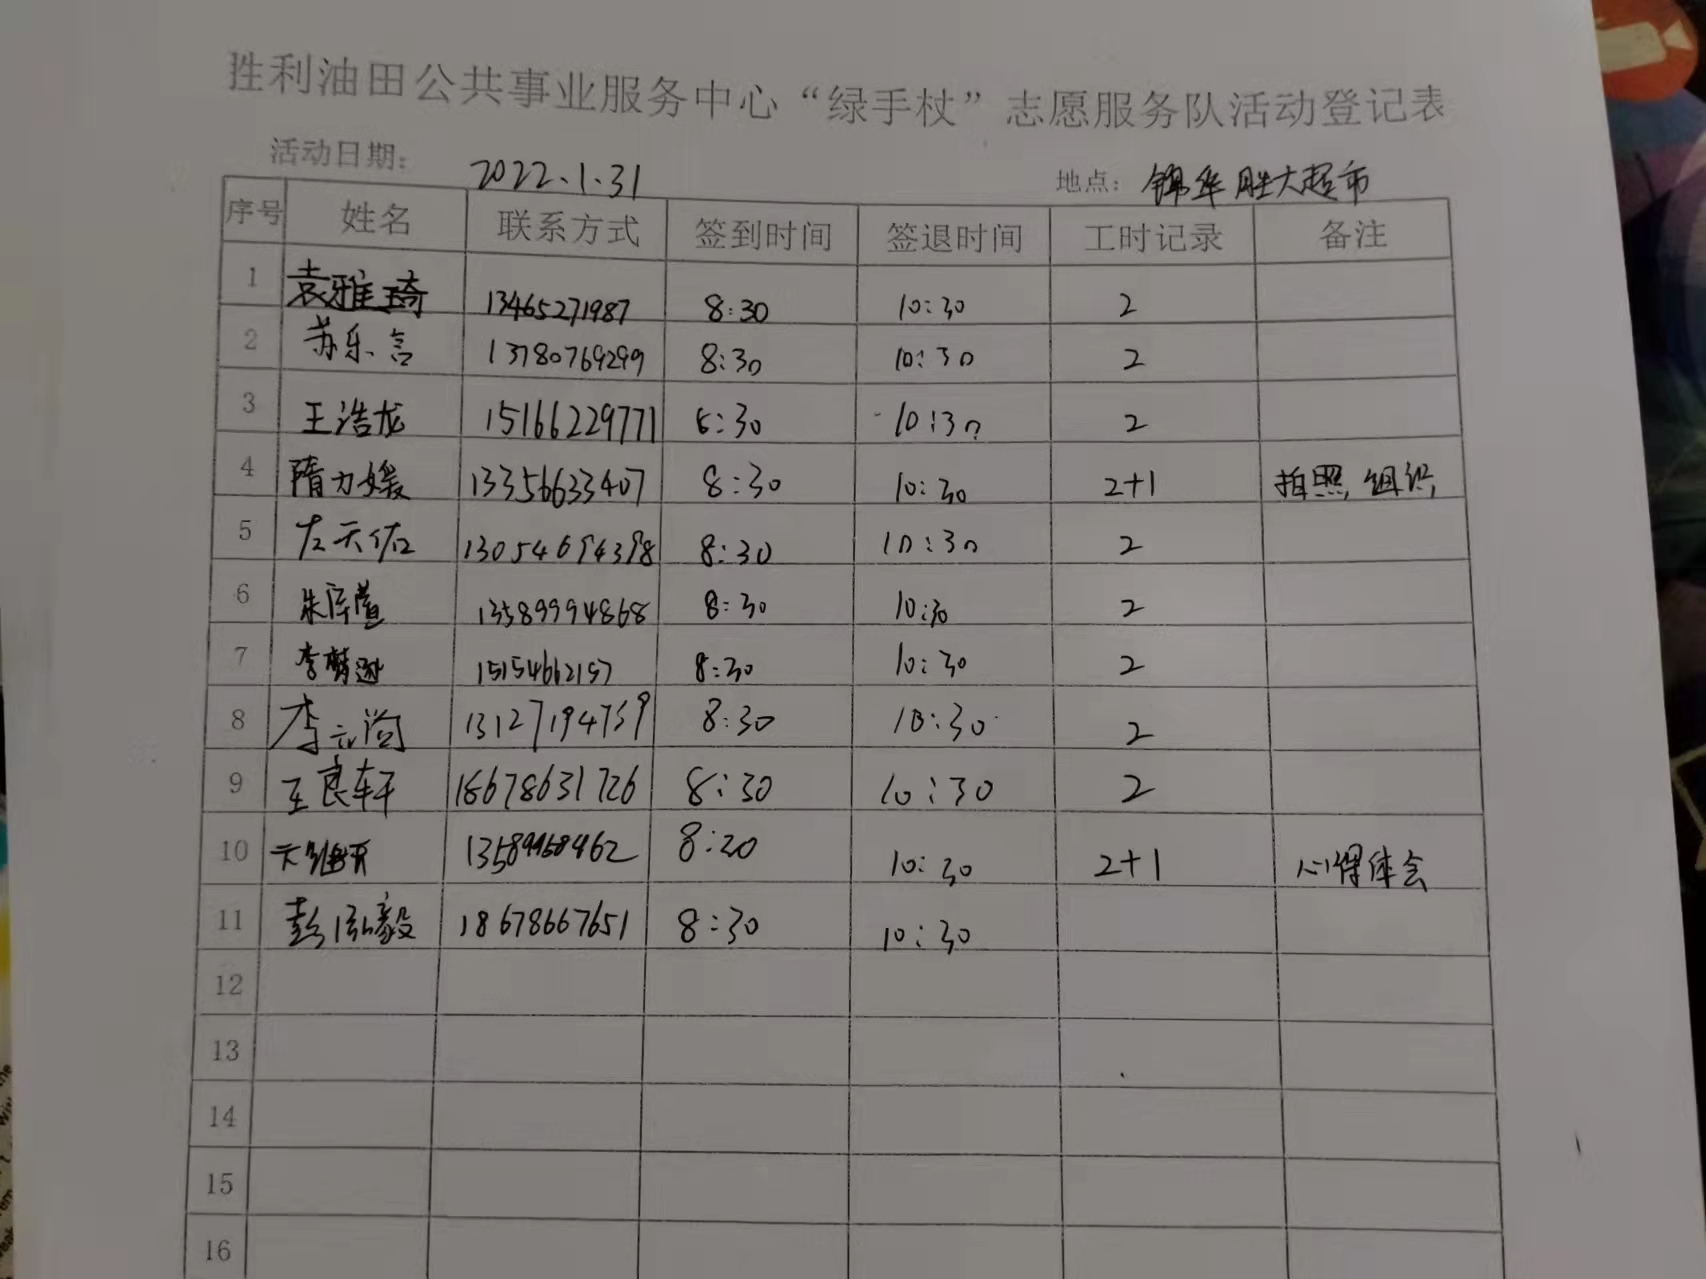 胜利油田公共事业服务中心“绿手杖”志愿服务队活动登记表
活动日期: 2022.1.31 地点: 锦华胜大超市
序号 姓名 联系方式 签到时间 签退时间 工时记录 备注
1 袁雅琦 13465271987 8:30 10:30 2
2 苏乐言 13780769299 8:30 10:30 2
3 王浩龙 15166229771 8:30 10:30 2
4 隋力媛 13356633407 8:30 10:30 2+1 拍照 组织
5 左天佑 13054694398 8:30 10:30 2
6 朱 13589994868 8:30 10:30 2
7 李 15154662157 8:30 10:30 2
8 李 13127194759 8:30 10:30 2
9 王良轩 18678631726 8:30 10:30 2
10 13589968462 8:30 10:30 2+1 心得体会
11 彭泓毅 18678667651 8:30 10:30
12
13
14
15
16